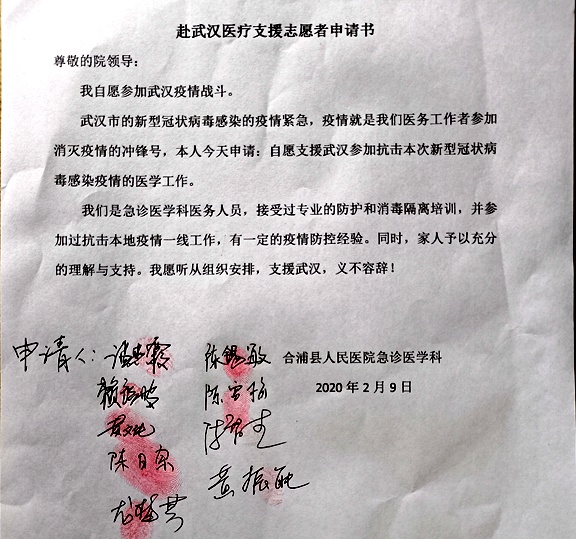 赴武汉医疗支援志愿者申请书
尊敬的院领导：
我自愿参加武汉疫情战斗。
武汉市的新型冠状病毒感染的疫情紧急，疫情就是我们医务工作者参加
消灭疫情的冲锋号，本人今天申请：自愿支援武汉参加抗击本次新型冠状病
毒感染疫情的医学工作。
我们是急诊医学科医务人员，接受过专业的防护和消毒隔离培训，并参
加过抗击本地疫情一线工作，有一定的疫情防控经验。同时，家人予以充分
的理解与支持。我愿听从组织安排，支援武汉，义不容辞！
申请人：
陈银敏
合浦县人民医院急诊医学科
陈雪梅
2020 年 2 月 9 日
陈日
黄振